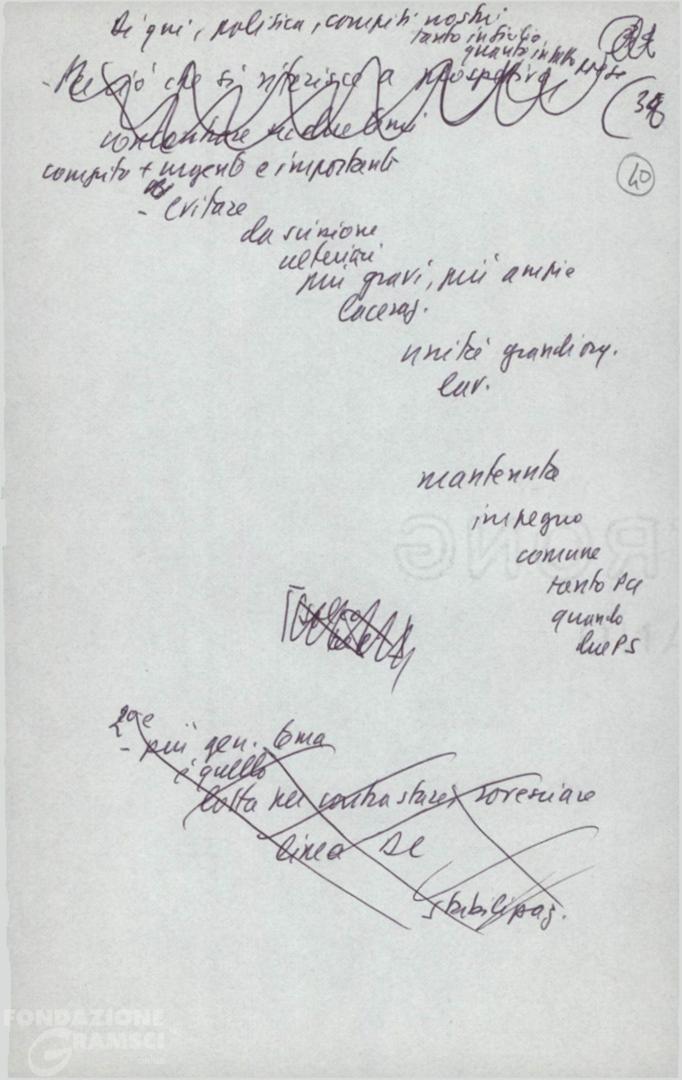 Di qui, politica, compiti nostri
tanto in Sicilia
quanto in tutto paese
- Per ciò che si riferisce a prospettiva
34
concentrare su due temi
compito + urgente e importante
40
- evitare
da scissione
ulteriori
più gravi, più ampie
laceraz.
unità grandi org.
lav.
mantenuto
impegno
comune
tanto PCI
quando
due PS
2° e
- più gen. tema
è quello
lotta per contrastare, rovesciare
linea DC
stabilizzaz.
FONDAZIONE
GRAMSCI